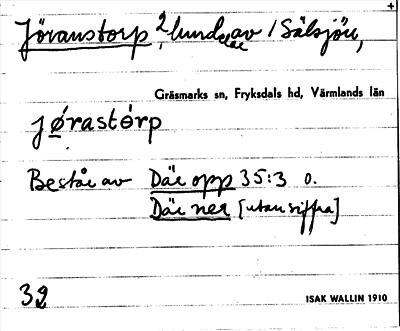 Jöranstorp, 2 lund av / Sälsjön,
Gräsmarks sn, Fryksdals hd, Värmlands län
jørastórp
Består av Där opp 35:3 o.
Där ner [utan siffra]
32
ISAK WALLIN 1910